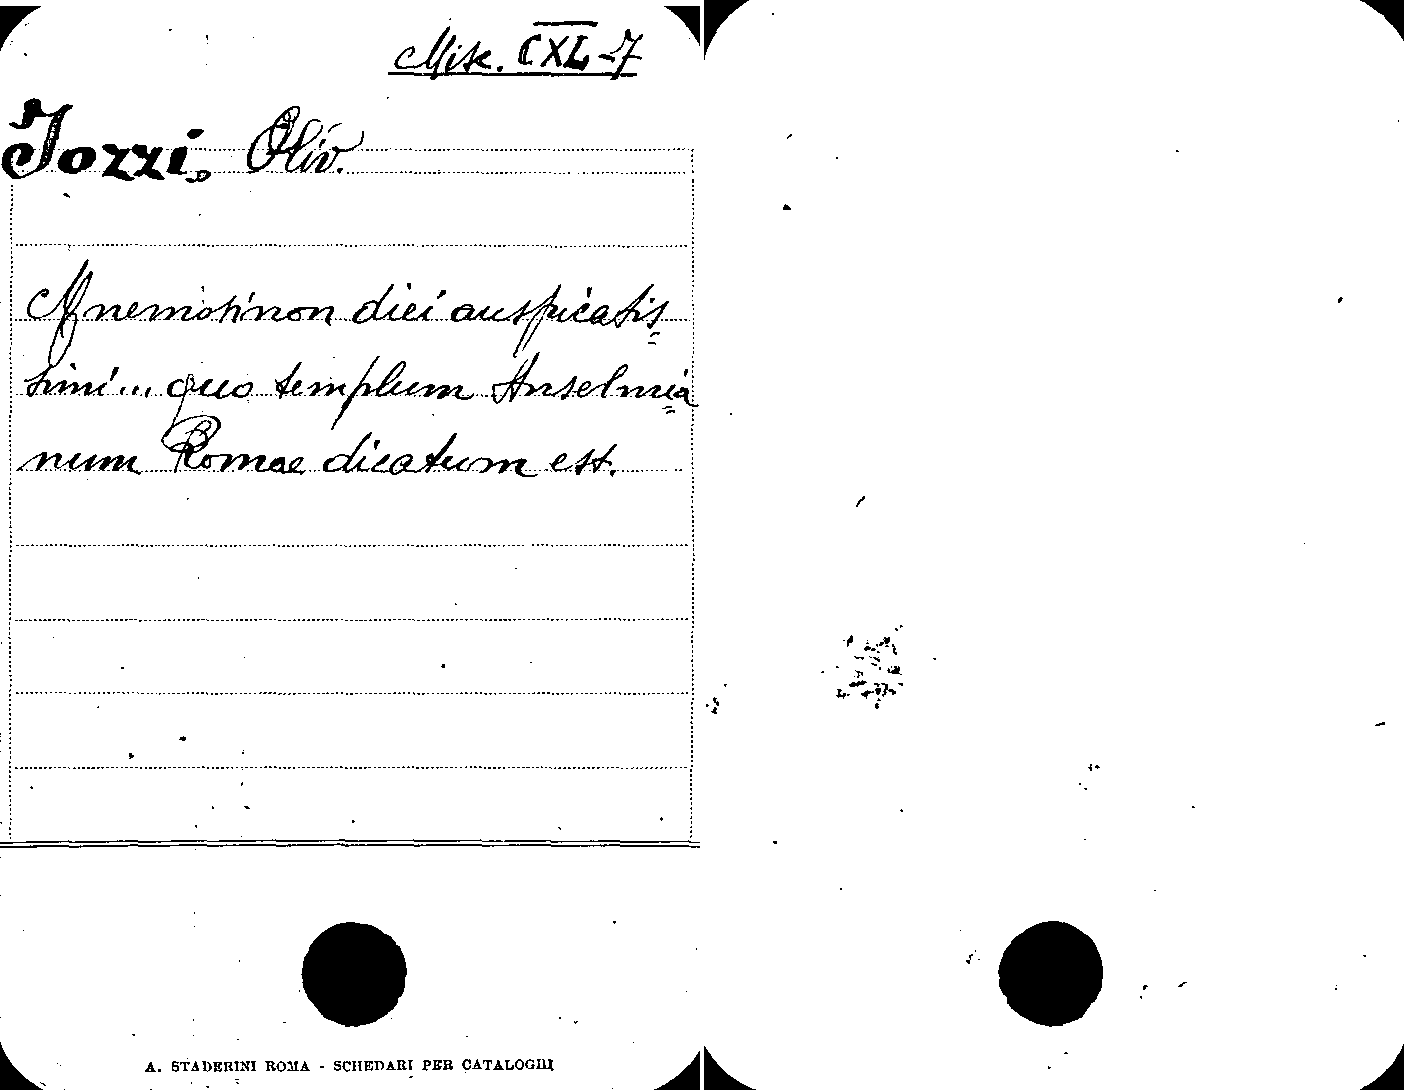 Misc. CXL-7
Jozzi, Oliv.
Mnemosinon diei auspicatis=
simi... quo templum Anselmia=
num Romae dicatum est.
A. STADERINI ROMA - SCHEDARI PER CATALOGHI